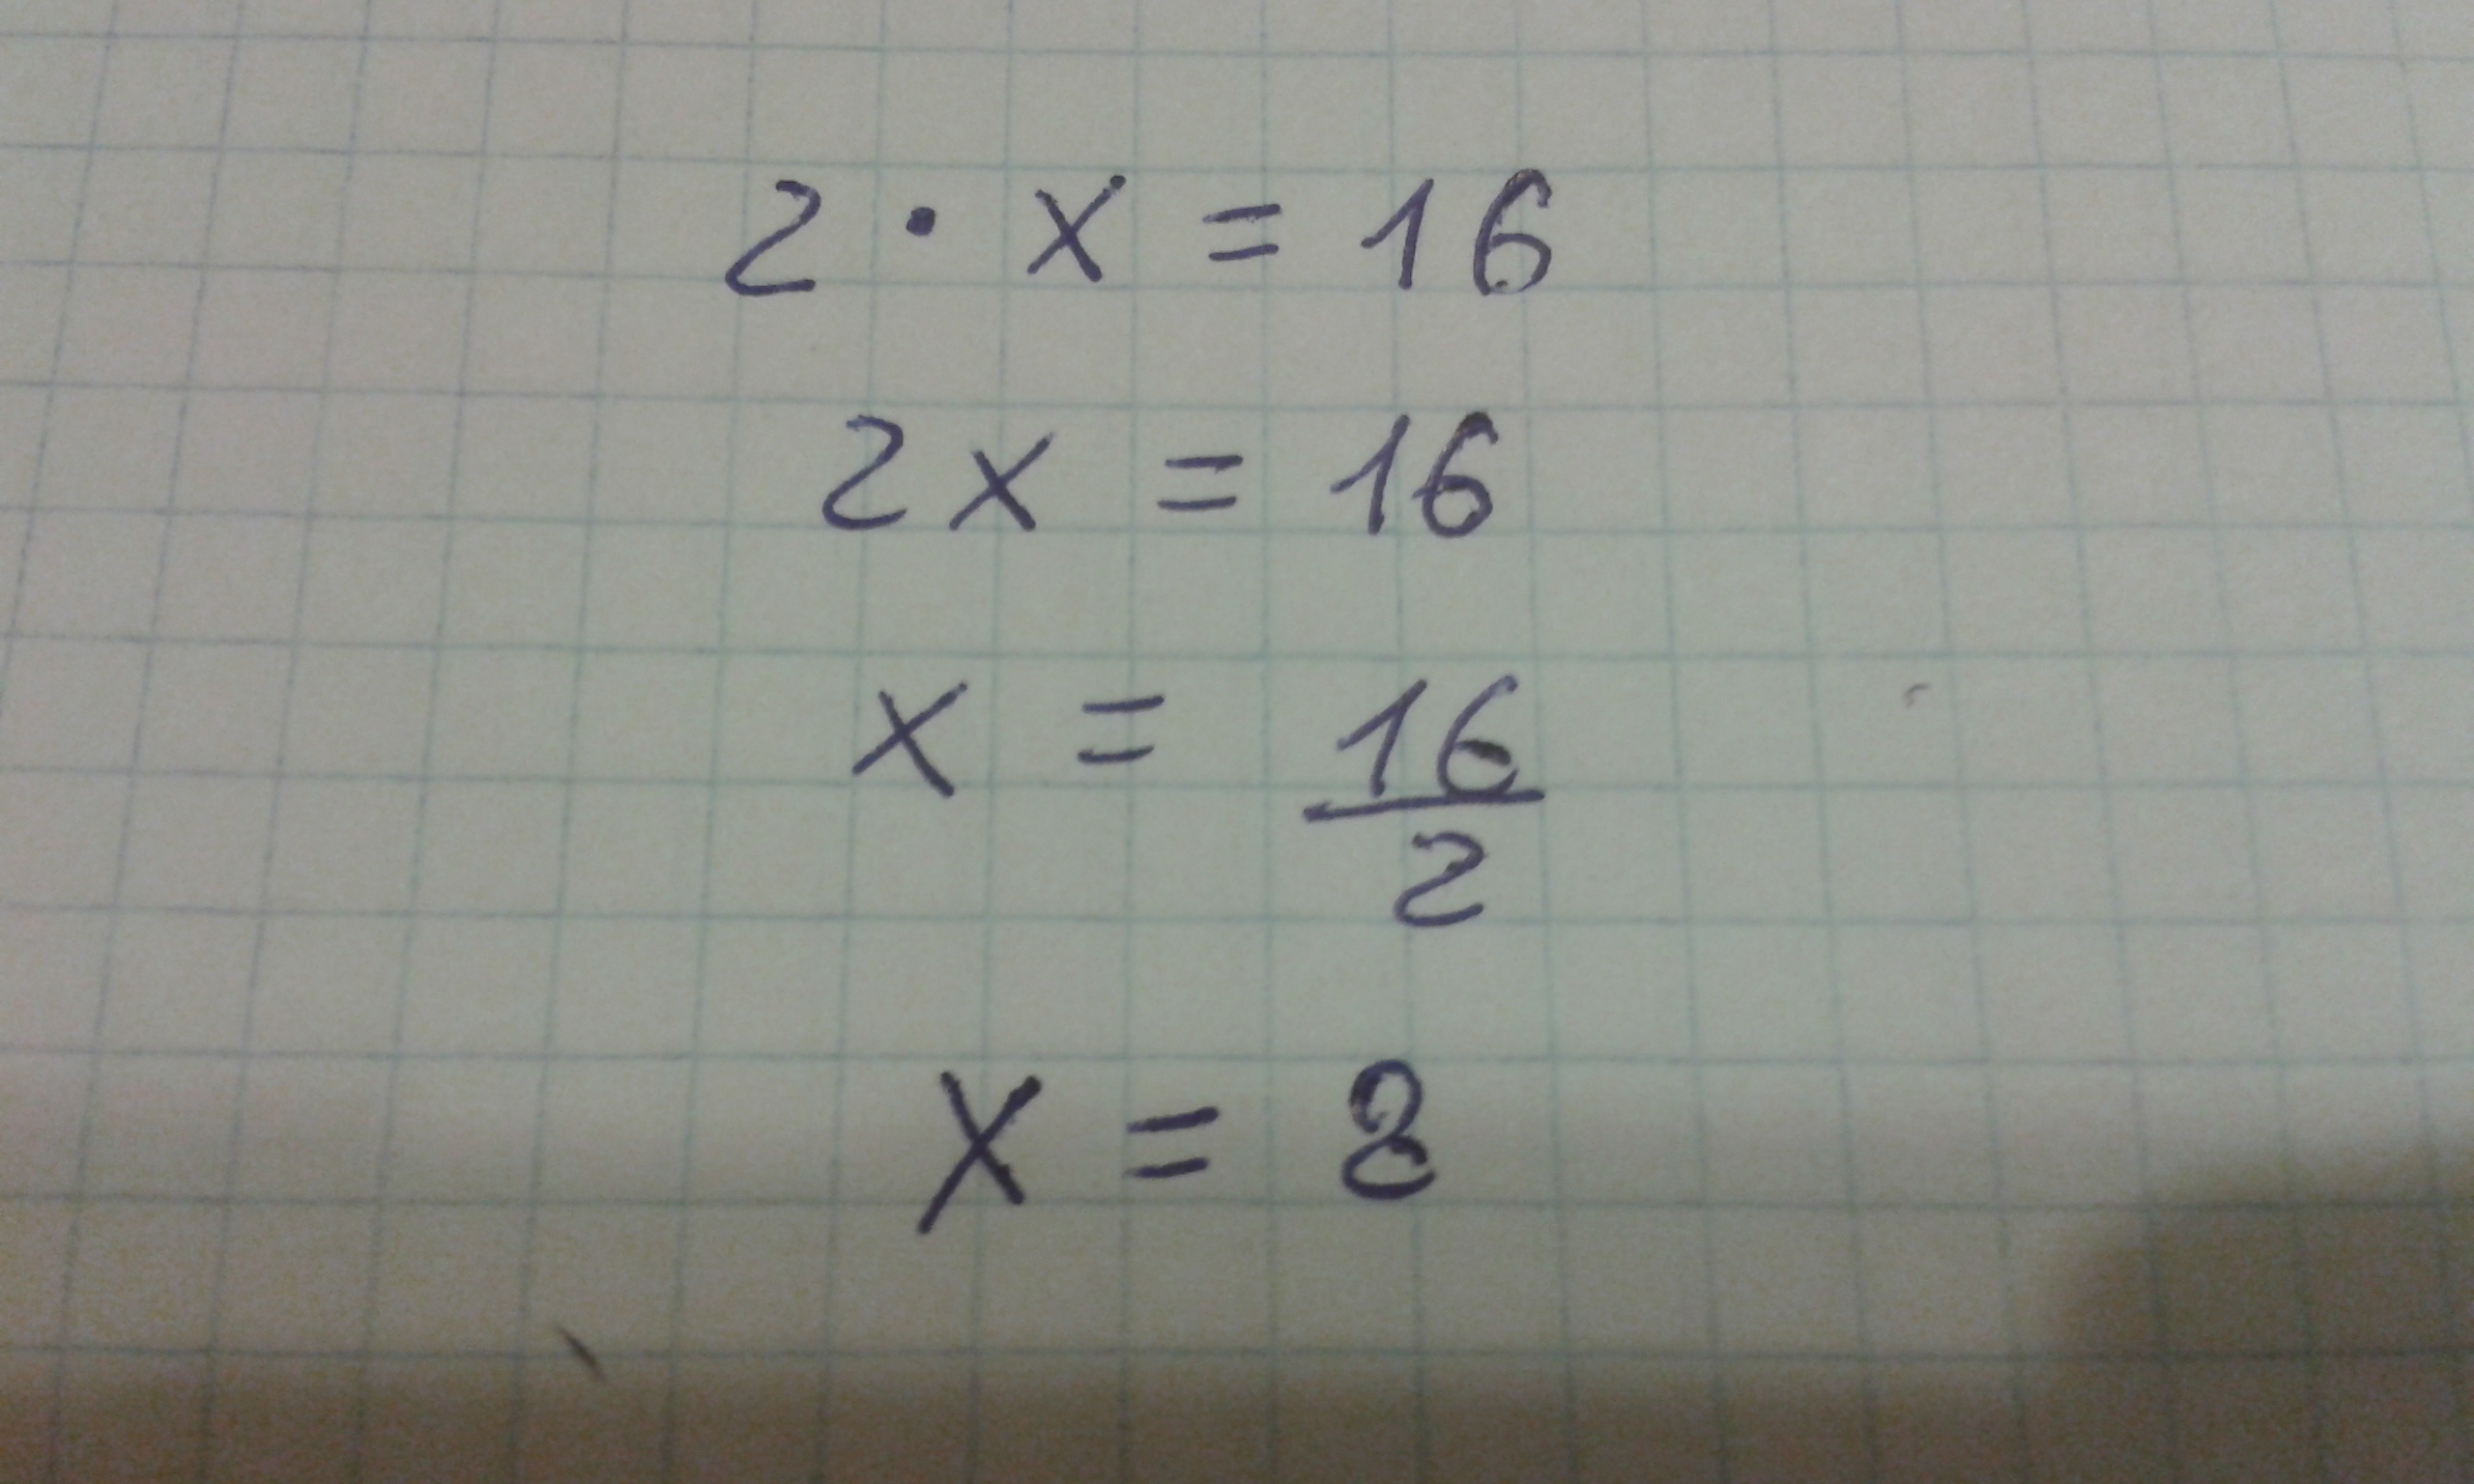 2 · x = 16
2x = 16
x = 16/2
x = 8